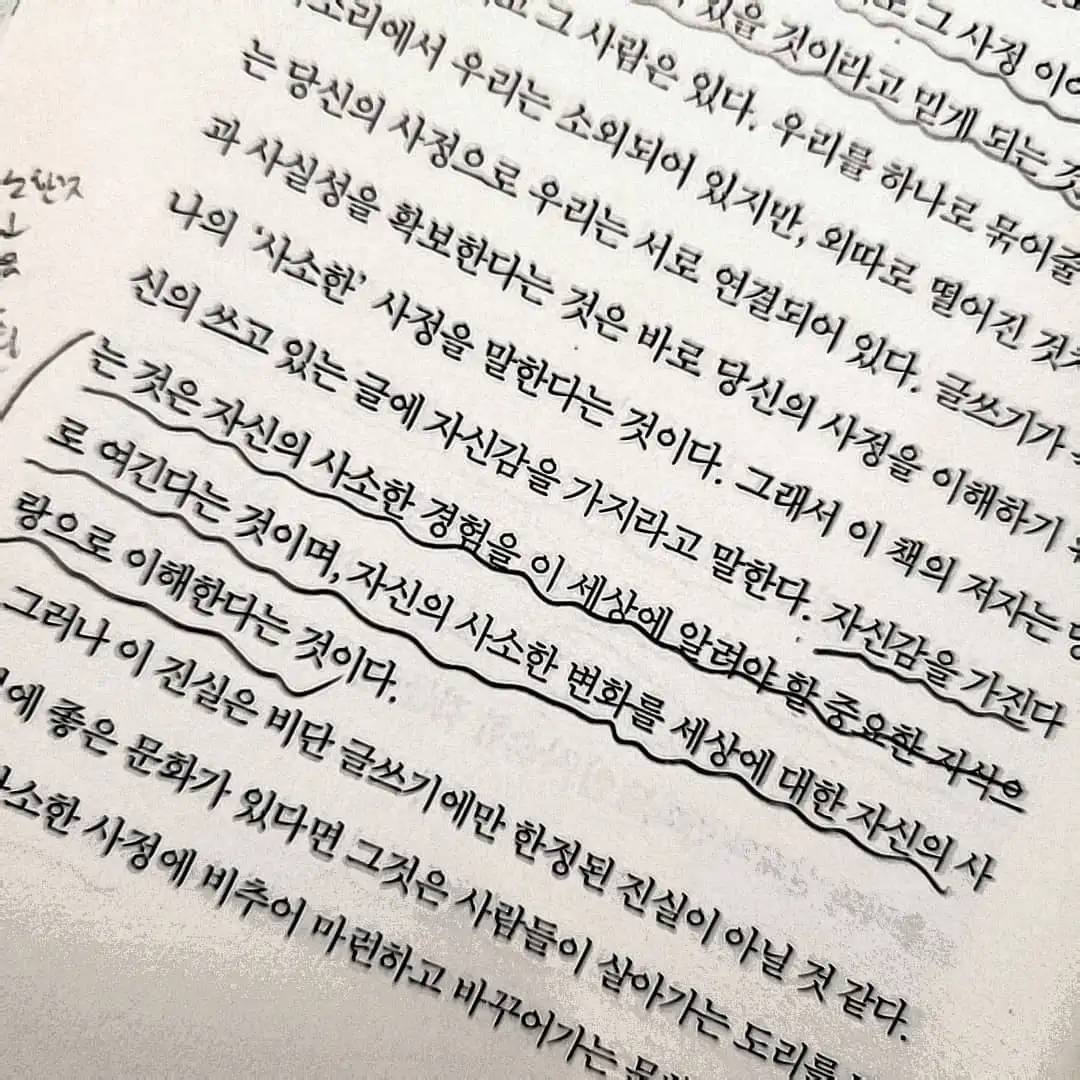 그 사정
있을 것이라고 믿게 되는
그 사람은 있다. 우리를 하나로 묶어줄
우리는 소외되어 있지만, 외따로 떨어진
는 당신의 사정으로 우리는 서로 연결되어 있다. 글쓰기가
과 사실성을 확보한다는 것은 바로 당신의 사정을 이해하기
나의 ‘사소한’ 사정을 말한다는 것이다. 그래서 이 책의 저자는
신의 쓰고 있는 글에 자신감을 가지라고 말한다. 자신감을 가진다
는 것은 자신의 사소한 경험을 이 세상에 알려야 할 중요한 지식으
로 여긴다는 것이며, 자신의 사소한 변화를 세상에 대한 자신의 사
랑으로 이해한다는 것이다.
그러나 이 진실은 비단 글쓰기에만 한정된 진실이 아닐 것 같다.
에 좋은 문화가 있다면 그것은 사람들이 살아가는 도리를
사소한 사정에 비추어 마련하고 바꾸어가는